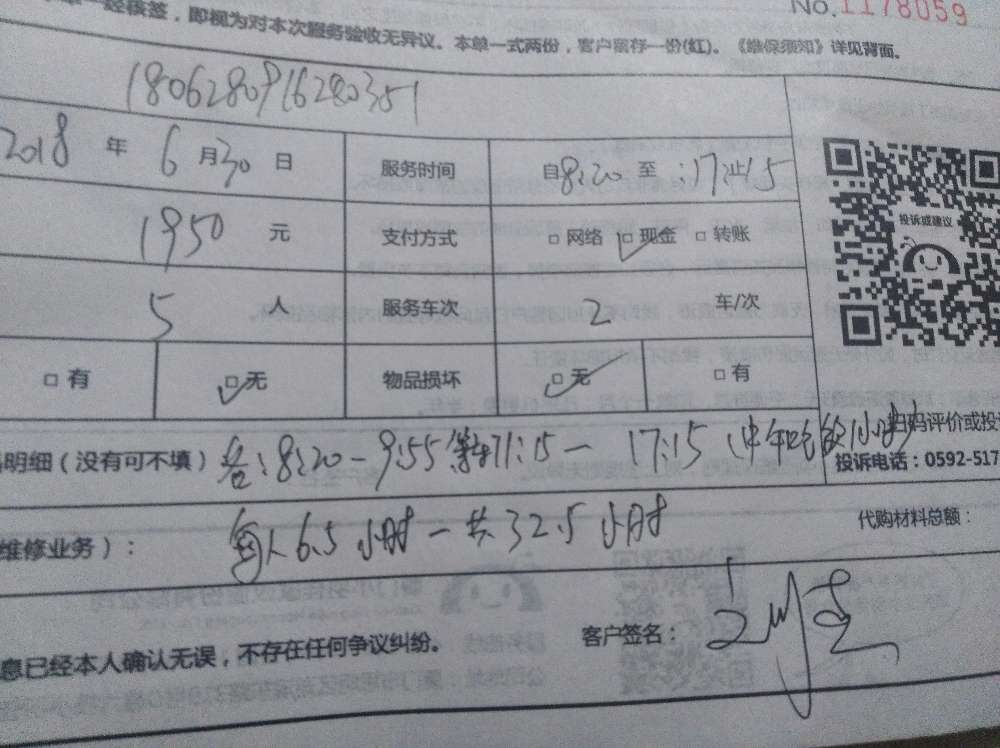 No.1178059
经核签，即视为对本次服务验收无异议。本单一式两份，客户留存一份(红)。《维保须知》详见背面。
1806280916280351
2018 年 6 月 30 日 服务时间 自8:20 至 :17:15
1950 元 支付方式 □ 网络 ☑ 现金 □ 转账
投诉或建议
5 人 服务车次 2 车/次
□ 有 ☑ 无 物品损坏 ☑ 无 □ 有
扫码评价或投诉
明细（没有可不填） 8:20-9:55 11:15-17:15
投诉电话：0592-517
维修业务）： 每人6.5小时-共32.5小时 代购材料总额：
息已经本人确认无误，不存在任何争议纠纷。 客户签名：